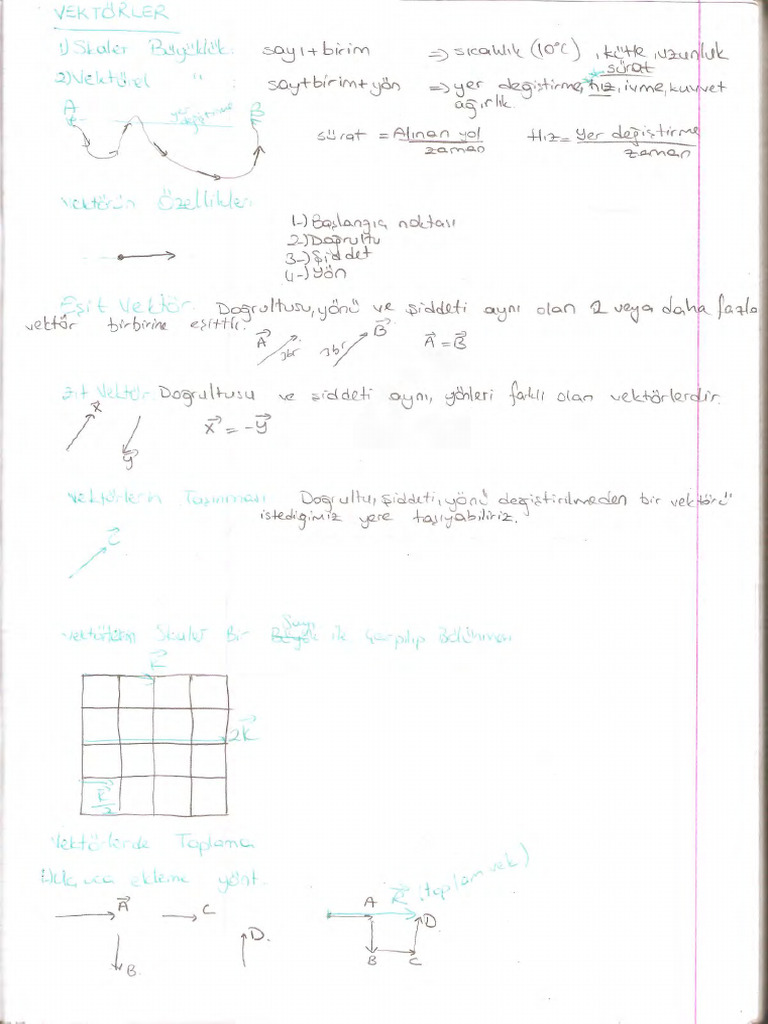 VEKTÖRLER
1) Skaler Büyüklük: sayı+birim ⇒ sıcaklık (10°C), kütle, uzunluk
sürat
2) Vektörel " : sayı+birim+yön ⇒ yer değiştirme, hız, ivme, kuvvet
ağırlık.
A yer değiştirme B
sürat = Alınan yol / zaman Hız = Yer değiştirme / zaman
Vektörün Özellikleri
1-) Başlangıç noktası
2-) Doğrultu
3-) Şiddet
4-) Yön
Eşit Vektör: Doğrultusu, yönü ve şiddeti aynı olan 2 veya daha fazla
vektör birbirine eşittir.
A⃗ 3br 3br B⃗ A⃗ = B⃗
Zıt Vektör: Doğrultusu ve şiddeti aynı, yönleri farklı olan vektörlerdir.
X⃗ Y⃗ X⃗ = -Y⃗
Vektörlerin Taşınması Doğrultu, şiddeti, yönü değiştirilmeden bir vektörü
istediğimiz yere taşıyabiliriz.
C⃗
Vektörlerin Skaler Bir Sayı ile Çarpılıp Bölünmesi
K⃗
2K⃗
K⃗/2
Vektörlerde Toplama
1) Uç uca ekleme yönt.
A⃗ C B. D.
R⃗ (toplam vek)
A D
B C